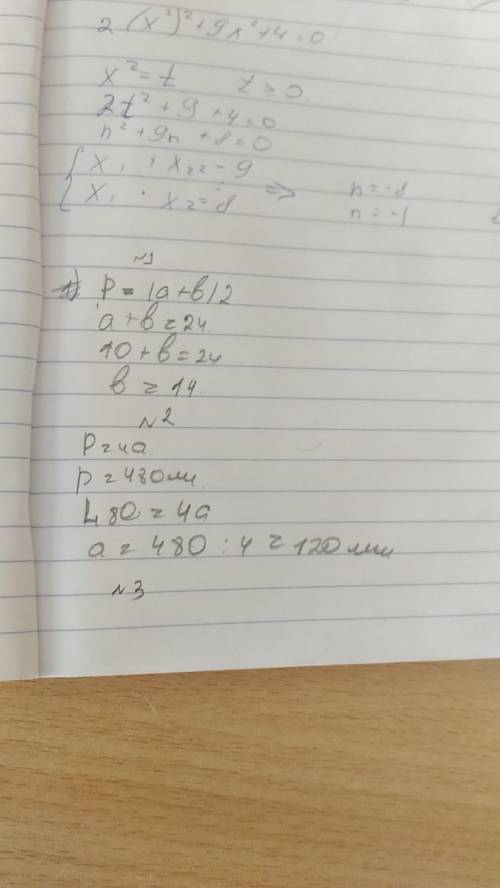 2 (x²)² + 9x² + 4 = 0
x² = t t ≥ 0
2t² + 9 + 4 = 0
n² + 9n + 8 = 0
x₁ + x₂ = -9
x₁ · x₂ = 8 ⇒ n = -8
n = -1
№1
P = (a+b)2
a + b = 24
10 + b = 24
b = 14
№2
P = 4a
p = 480мм
480 = 4a
a = 480 : 4 = 120 мм
№3